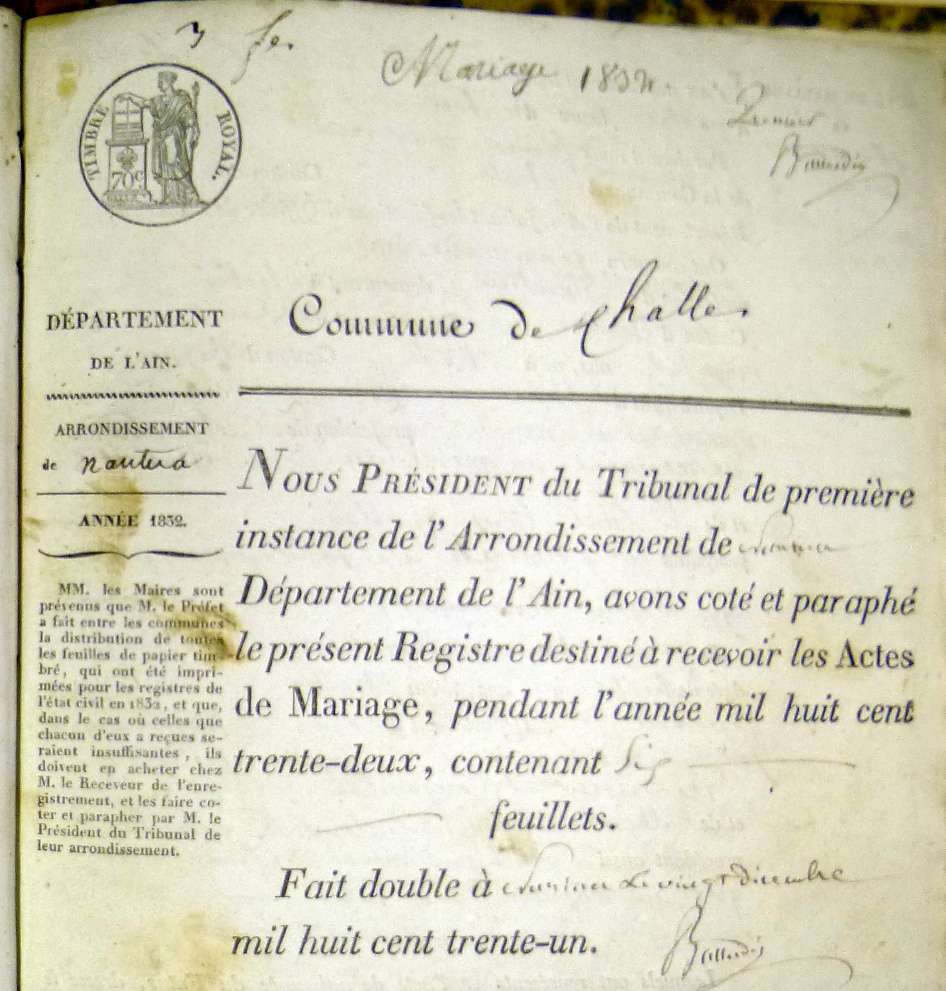 Mariage 1832
Premier
TIMBRE ROYAL.
70c
DÉPARTEMENT
DE L'AIN.
ARRONDISSEMENT
de nantua
ANNÉE 1832.
MM. les Maires sont
prévenus que M. le Préfet
a fait entre les communes
la distribution de toutes
les feuilles de papier tim-
bré, qui ont été impri-
mées pour les registres de
l'état civil en 1832, et que,
dans le cas où celles que
chacun d'eux a reçues se-
raient insuffisantes, ils
doivent en acheter chez
M. le Receveur de l'enre-
gistrement, et les faire co-
ter et parapher par M. le
Président du Tribunal de
leur arrondissement.
Commune de Challes
NOUS PRÉSIDENT du Tribunal de première
instance de l'Arrondissement de Nantua
Département de l'Ain, avons coté et paraphé
le présent Registre destiné à recevoir les Actes
de Mariage, pendant l'année mil huit cent
trente-deux, contenant Six
feuillets.
Fait double à Nantua le vingt décembre
mil huit cent trente-un.